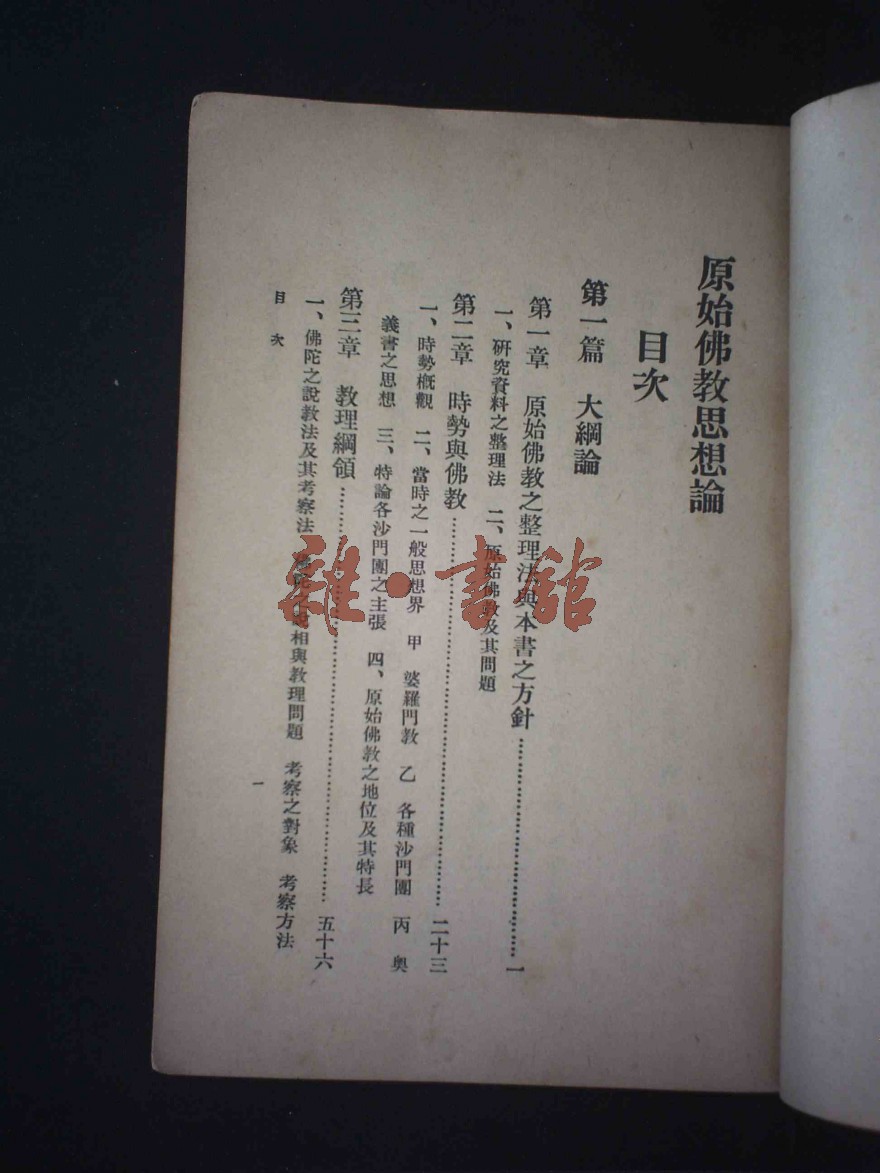 原始佛教思想論
目次
第一篇 大綱論
第一章 原始佛教之整理法與本書之方針……一
一、研究資料之整理法 二、原始佛教及其問題
第二章 時勢與佛教……二十三
一、時勢概觀 二、當時之一般思想界 甲 婆羅門教 乙 各種沙門團 丙 奧
義書之思想 三、特論各沙門團之主張 四、原始佛教之地位及其特長
第三章 教理綱領……五十六
一、佛陀之說教法及其考察法 相與教理問題 考察之對象 考察方法
目次
一
雜·書館